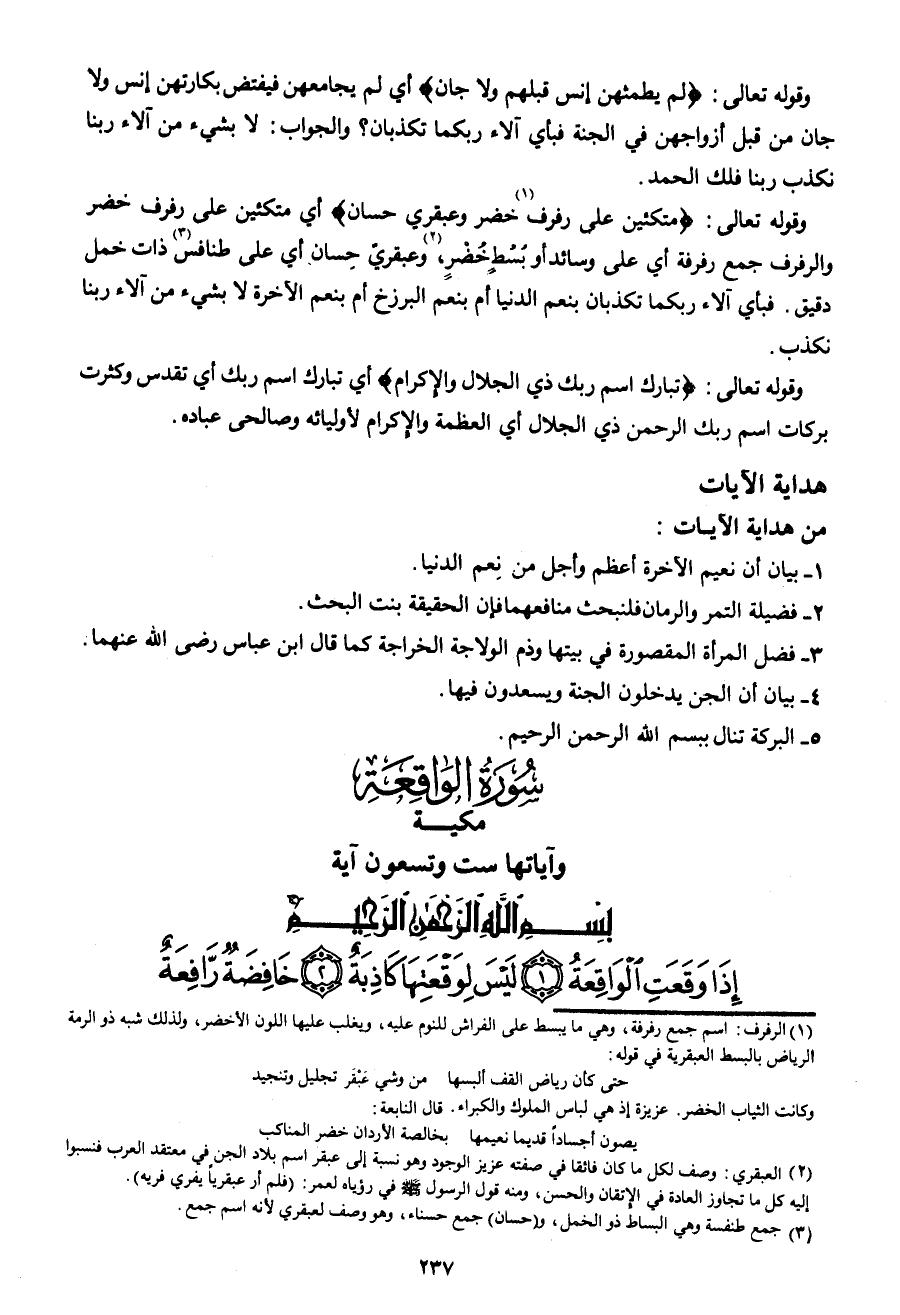 وقوله تعالى: ﴿لم يطمثهن إنس قبلهم ولا جان﴾ أي لم يجامعهن فيفتض بكارتهن إنس ولا
جان من قبل أزواجهن في الجنة فبأي آلاء ربكما تكذبان؟ والجواب: لا بشيء من آلاء ربنا
نكذب ربنا فلك الحمد.
وقوله تعالى: ﴿متكئين على رفرف(١) خضر وعبقري حسان﴾ أي متكئين على رفرف خضر
والرفرف جمع رفرفة أي على وسائد أو بُسْطٍ خُضْرٍ، (٢)وعبقريّ حِسان أي على طنافس(٣) ذات خمل
دقيق. فبأي آلاء ربكما تكذبان بنعم الدنيا أم بنعم البرزخ أم بنعم الآخرة لا بشيء من آلاء ربنا
نكذب.
وقوله تعالى: ﴿تبارك اسم ربك ذي الجلال والإكرام﴾ أي تبارك اسم ربك أي تقدس وكثرت
بركات اسم ربك الرحمن ذي الجلال أي العظمة والإكرام لأوليائه وصالحى عباده.
هداية الآيات
من هداية الآيـات :
١ـ بيان أن نعيم الآخرة أعظم وأجل من نِعم الدنيا.
٢ـ فضيلة التمر والرمان فلنبحث منافعهما فإن الحقيقة بنت البحث.
٣ـ فضل المرأة المقصورة في بيتها وذم الولاجة الخراجة كما قال ابن عباس رضى الله عنهما.
٤ـ بيان أن الجن يدخلون الجنة ويسعدون فيها.
٥ـ البركة تنال ببسم الله الرحمن الرحيم.
سُورَةُ الوَاقِعَة
مكيـــة
وآياتها ست وتسعون آية
بِسْمِ اللَّهِ الرَّحْمَٰنِ الرَّحِيمِ
إِذَا وَقَعَتِ ٱلْوَاقِعَةُ ١ لَيْسَ لِوَقْعَتِهَا كَاذِبَةٌ ٢ خَافِضَةٌ رَّافِعَةٌ
(١) الرفرف: اسم جمع رفرفة، وهي ما يبسط على الفراش للنوم عليه، ويغلب عليها اللون الأخضر، ولذلك شبه ذو الرمة
الرياض بالبسط العبقرية في قوله:
حتى كأن رياض القف ألبسها من وشي عَبْقَر تجليل وتنجيد
وكانت الثياب الخضر. عزيزة إذ هي لباس الملوك والكبراء. قال النابعة:
يصون أجساداً قديما نعيمها بخالصة الأردان خضر المناكب
(٢) العبقري: وصف لكل ما كان فائقا في صفته عزيز الوجود وهو نسبة إلى عبقر اسم بلاد الجن في معتقد العرب فنسبوا
إليه كل ما تجاوز العادة في الإتقان والحسن، ومنه قول الرسول ﷺ في رؤياه لعمر: (فلم أر عبقرياً يفري فريه).
(٣) جمع طنفسة وهي البساط ذو الخمل، و(حسان) جمع حسناء، وهو وصف لعبقري لأنه اسم جمع.
٢٣٧